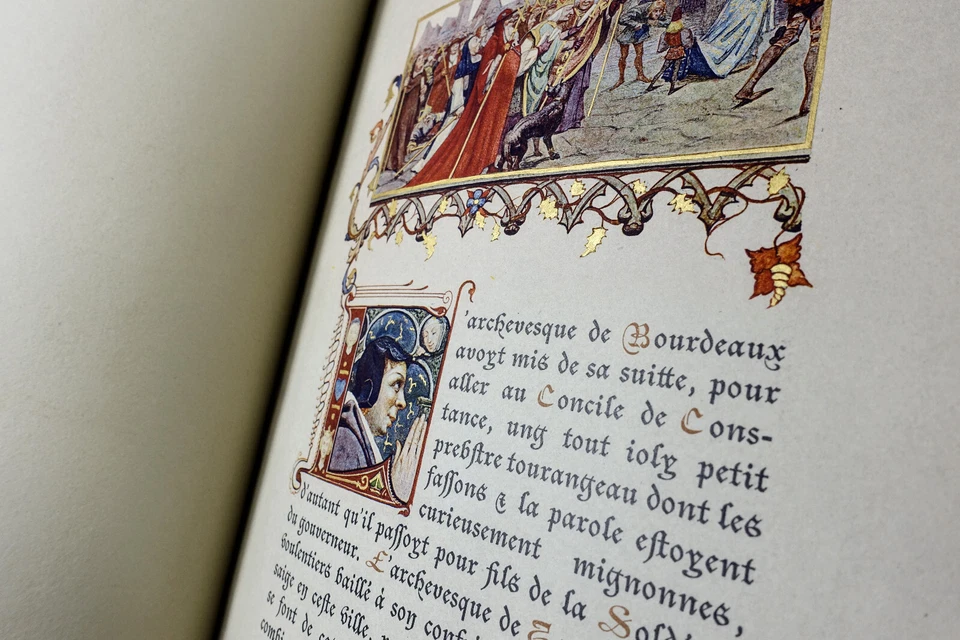 L'archevesque de Bourdeaux
avoyt mis de sa suitte, pour
aller au Concile de Cons-
tance, ung tout ioly petit
prebstre tourangeau dont les
fassons & la parole estoyent
curieusement mignonnes,
d'autant qu'il passoyt pour fils de la Sold
du gouverneur. L'archevesque de
voulentiers baillé à son
saige en ceste ville,
se font de